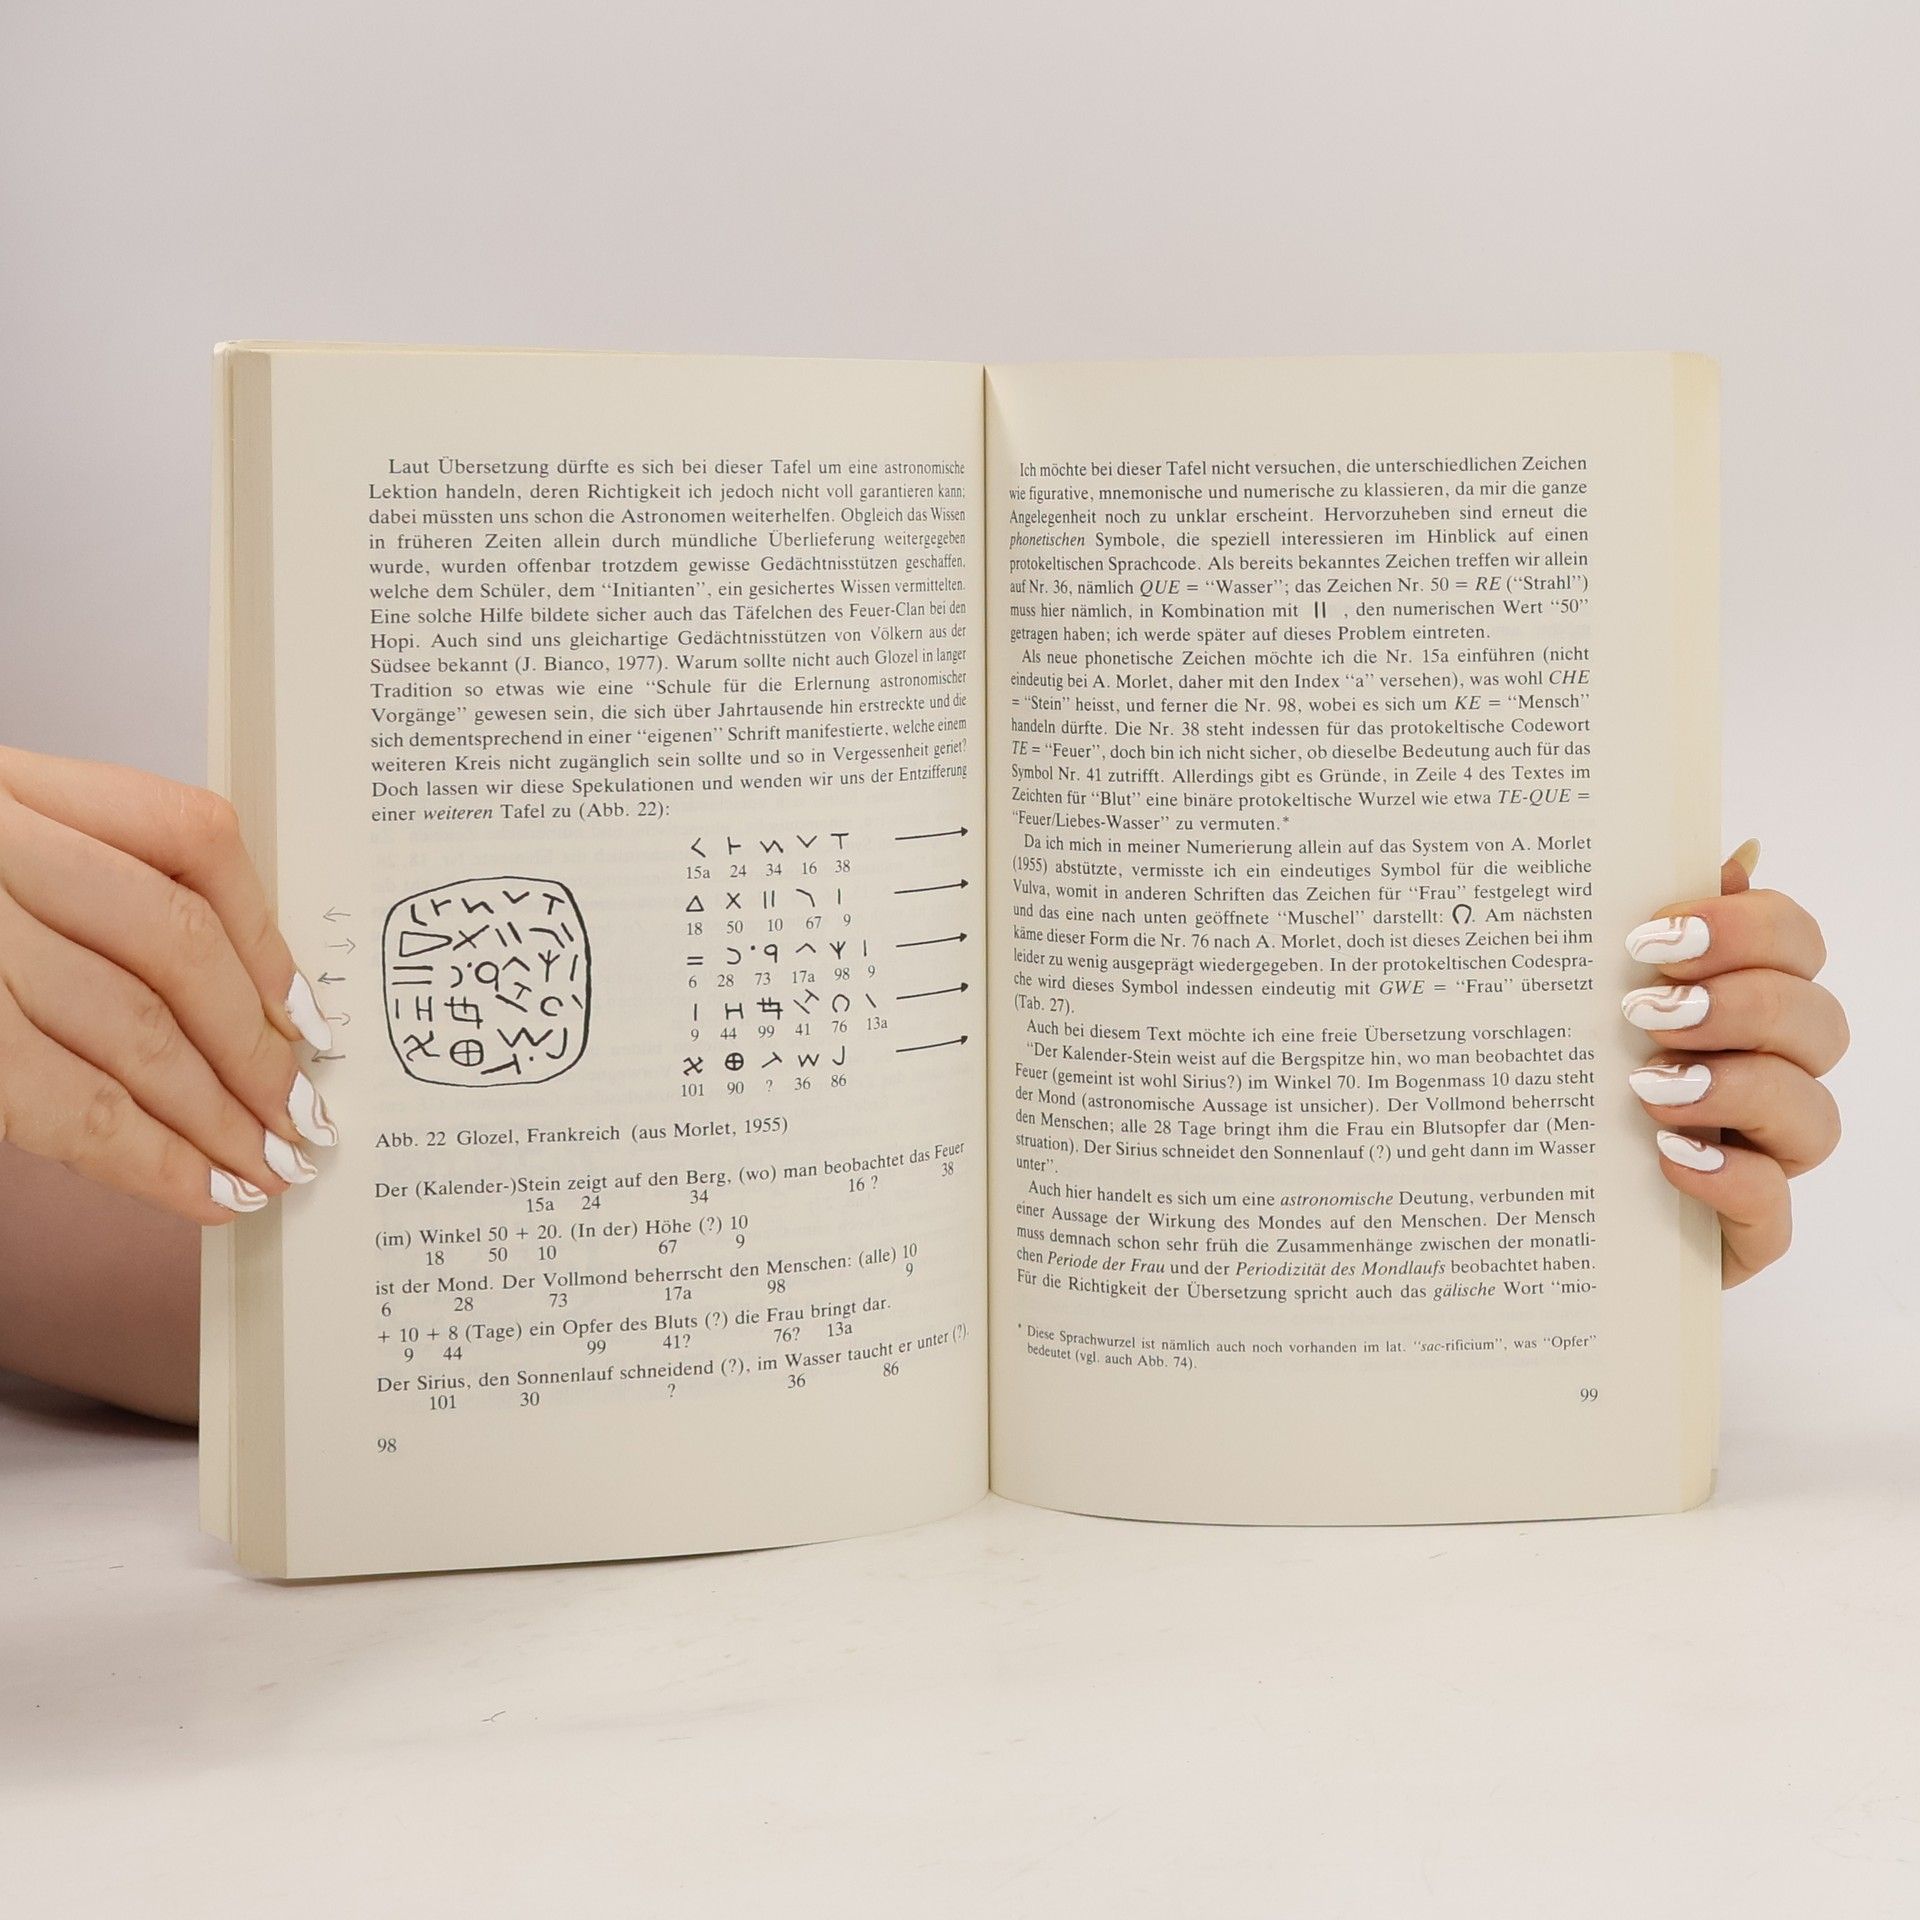 Laut Übersetzung dürfte es sich bei dieser Tafel um eine astronomische
Lektion handeln, deren Richtigkeit ich jedoch nicht voll garantieren kann;
dabei müssten uns schon die Astronomen weiterhelfen. Obgleich das Wissen
in früheren Zeiten allein durch mündliche Überlieferung weitergegeben
wurde, wurden offenbar trotzdem gewisse Gedächtnisstützen geschaffen,
welche dem Schüler, dem “Initianten”, ein gesichertes Wissen vermittelten.
Eine solche Hilfe bildete sicher auch das Täfelchen des Feuer-Clan bei den
Hopi. Auch sind uns gleichartige Gedächtnisstützen von Völkern aus der
Südsee bekannt (J. Bianco, 1977). Warum sollte nicht auch Glozel in langer
Tradition so etwas wie eine “Schule für die Erlernung astronomischer
Vorgänge” gewesen sein, die sich über Jahrtausende hin erstreckte und die
sich dementsprechend in einer “eigenen” Schrift manifestierte, welche einem
weiteren Kreis nicht zugänglich sein sollte und so in Vergessenheit geriet?
Doch lassen wir diese Spekulationen und wenden wir uns der Entzifferung
einer weiteren Tafel zu (Abb. 22):
15a 24 34 16 38
18 50 10 67 9
6 28 73 17a 98 9
9 44 99 41 76 13a
101 90 ? 36 86
Abb. 22 Glozel, Frankreich (aus Morlet, 1955)
Der (Kalender-)Stein zeigt auf den Berg, (wo) man beobachtet das Feuer
15a 24 34 16 ? 38
(im) Winkel 50 + 20. (In der) Höhe (?) 10
18 50 10 67 9
ist der Mond. Der Vollmond beherrscht den Menschen: (alle) 10
6 28 73 17a 98 9
+ 10 + 8 (Tage) ein Opfer des Bluts (?) die Frau bringt dar.
9 44 99 41? 76? 13a
Der Sirius, den Sonnenlauf schneidend (?), im Wasser taucht er unter (?).
101 30 ? 36 86
98
Ich möchte bei dieser Tafel nicht versuchen, die unterschiedlichen Zeichen
wie figurative, mnemonische und numerische zu klassieren, da mir die ganze
Angelegenheit noch zu unklar erscheint. Hervorzuheben sind erneut die
phonetischen Symbole, die speziell interessieren im Hinblick auf einen
protokeltischen Sprachcode. Als bereits bekanntes Zeichen treffen wir allein
auf Nr. 36, nämlich QUE = “Wasser”; das Zeichen Nr. 50 = RE (“Strahl”)
muss hier nämlich, in Kombination mit || , den numerischen Wert “50”
getragen haben; ich werde später auf dieses Problem eintreten.
Als neue phonetische Zeichen möchte ich die Nr. 15a einführen (nicht
eindeutig bei A. Morlet, daher mit den Index “a” versehen), was wohl CHE
= “Stein” heisst, und ferner die Nr. 98, wobei es sich um KE = “Mensch”
handeln dürfte. Die Nr. 38 steht indessen für das protokeltische Codewort
TE = “Feuer”, doch bin ich nicht sicher, ob dieselbe Bedeutung auch für das
Symbol Nr. 41 zutrifft. Allerdings gibt es Gründe, in Zeile 4 des Textes im
Zeichten für “Blut” eine binäre protokeltische Wurzel wie etwa TE-QUE =
“Feuer/Liebes-Wasser” zu vermuten.*
Da ich mich in meiner Numerierung allein auf das System von A. Morlet
(1955) abstützte, vermisste ich ein eindeutiges Symbol für die weibliche
Vulva, womit in anderen Schriften das Zeichen für “Frau” festgelegt wird
und das eine nach unten geöffnete “Muschel” darstellt: . Am nächsten
käme dieser Form die Nr. 76 nach A. Morlet, doch ist dieses Zeichen bei ihm
leider zu wenig ausgeprägt wiedergegeben. In der protokeltischen Codespra-
che wird dieses Symbol indessen eindeutig mit GWE = “Frau” übersetzt
(Tab. 27).
Auch bei diesem Text möchte ich eine freie Übersetzung vorschlagen:
“Der Kalender-Stein weist auf die Bergspitze hin, wo man beobachtet das
Feuer (gemeint ist wohl Sirius?) im Winkel 70. Im Bogenmass 10 dazu steht
der Mond (astronomische Aussage ist unsicher). Der Vollmond beherrscht
den Menschen; alle 28 Tage bringt ihm die Frau ein Blutsopfer dar (Men-
struation). Der Sirius schneidet den Sonnenlauf (?) und geht dann im Wasser
unter”.
Auch hier handelt es sich um eine astronomische Deutung, verbunden mit
einer Aussage der Wirkung des Mondes auf den Menschen. Der Mensch
muss demnach schon sehr früh die Zusammenhänge zwischen der monatli-
chen Periode der Frau und der Periodizität des Mondlaufs beobachtet haben.
Für die Richtigkeit der Übersetzung spricht auch das gälische Wort “mio-
* Diese Sprachwurzel ist nämlich auch noch vorhanden im lat. “sac-rificium”, was “Opfer”
bedeutet (vgl. auch Abb. 74).
99